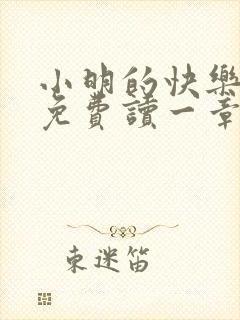 小明的快樂
免費讀一章
東迷笛